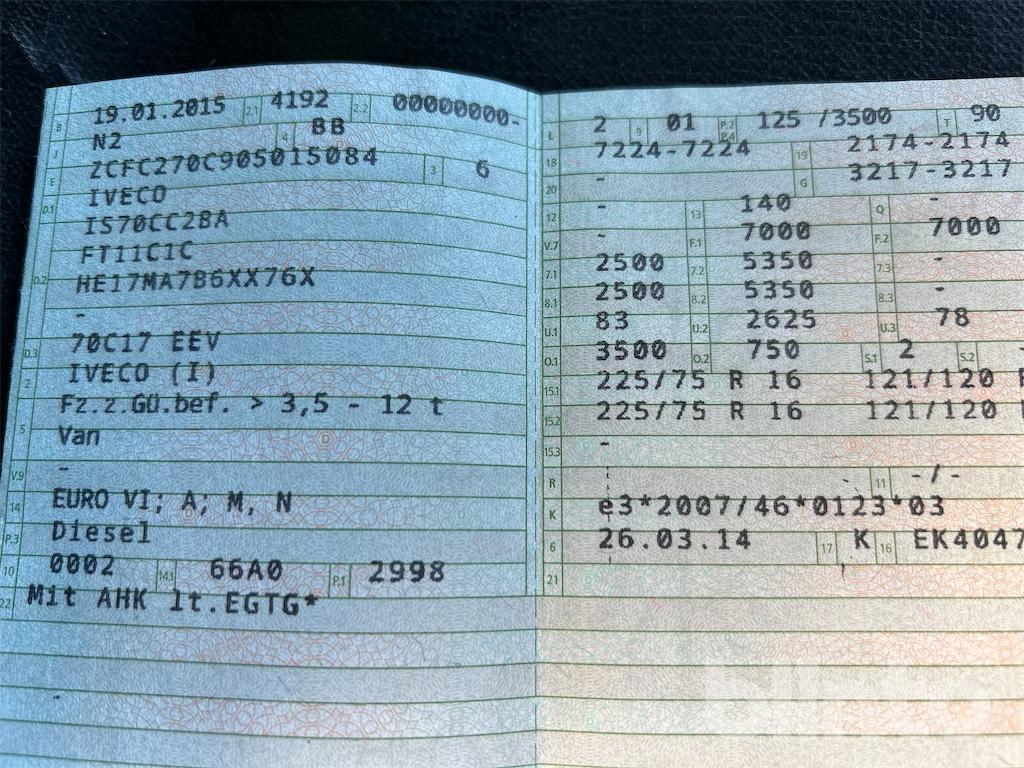 B 19.01.2015 2.1 4192 2.2 00000000-
J N2 4 BB
E ZCFC270C905015084 3 6
D.1 IVECO
IS70CC2BA
D.2 FT11C1C
HE17MA7B6XX76X
-
D.3 70C17 EEV
2 IVECO (I)
5 Fz.z.Gü.bef. > 3,5 - 12 t
Van
V.9 -
14 EURO VI; A; M, N
P.3 Diesel
10 0002 14.1 66A0 P.1 2998
22 Mit AHK lt.EGTG*
L 2 9 01 P.2 P.4 125 /3500 T 90
18 7224-7224 19 2174-2174
20 - G 3217-3217
12 - 13 140 Q -
V.7 - F.1 7000 F.2 7000
7.1 2500 7.2 5350 7.3 -
8.1 2500 8.2 5350 8.3 -
U.1 83 U.2 2625 U.3 78
O.1 3500 O.2 750 S.1 2 S.2
15.1 225/75 R 16 121/120
15.2 225/75 R 16 121/120
15.3 -
R 11 -/-
K e3*2007/46*0123*03
6 26.03.14 17 K 16 EK4047
21